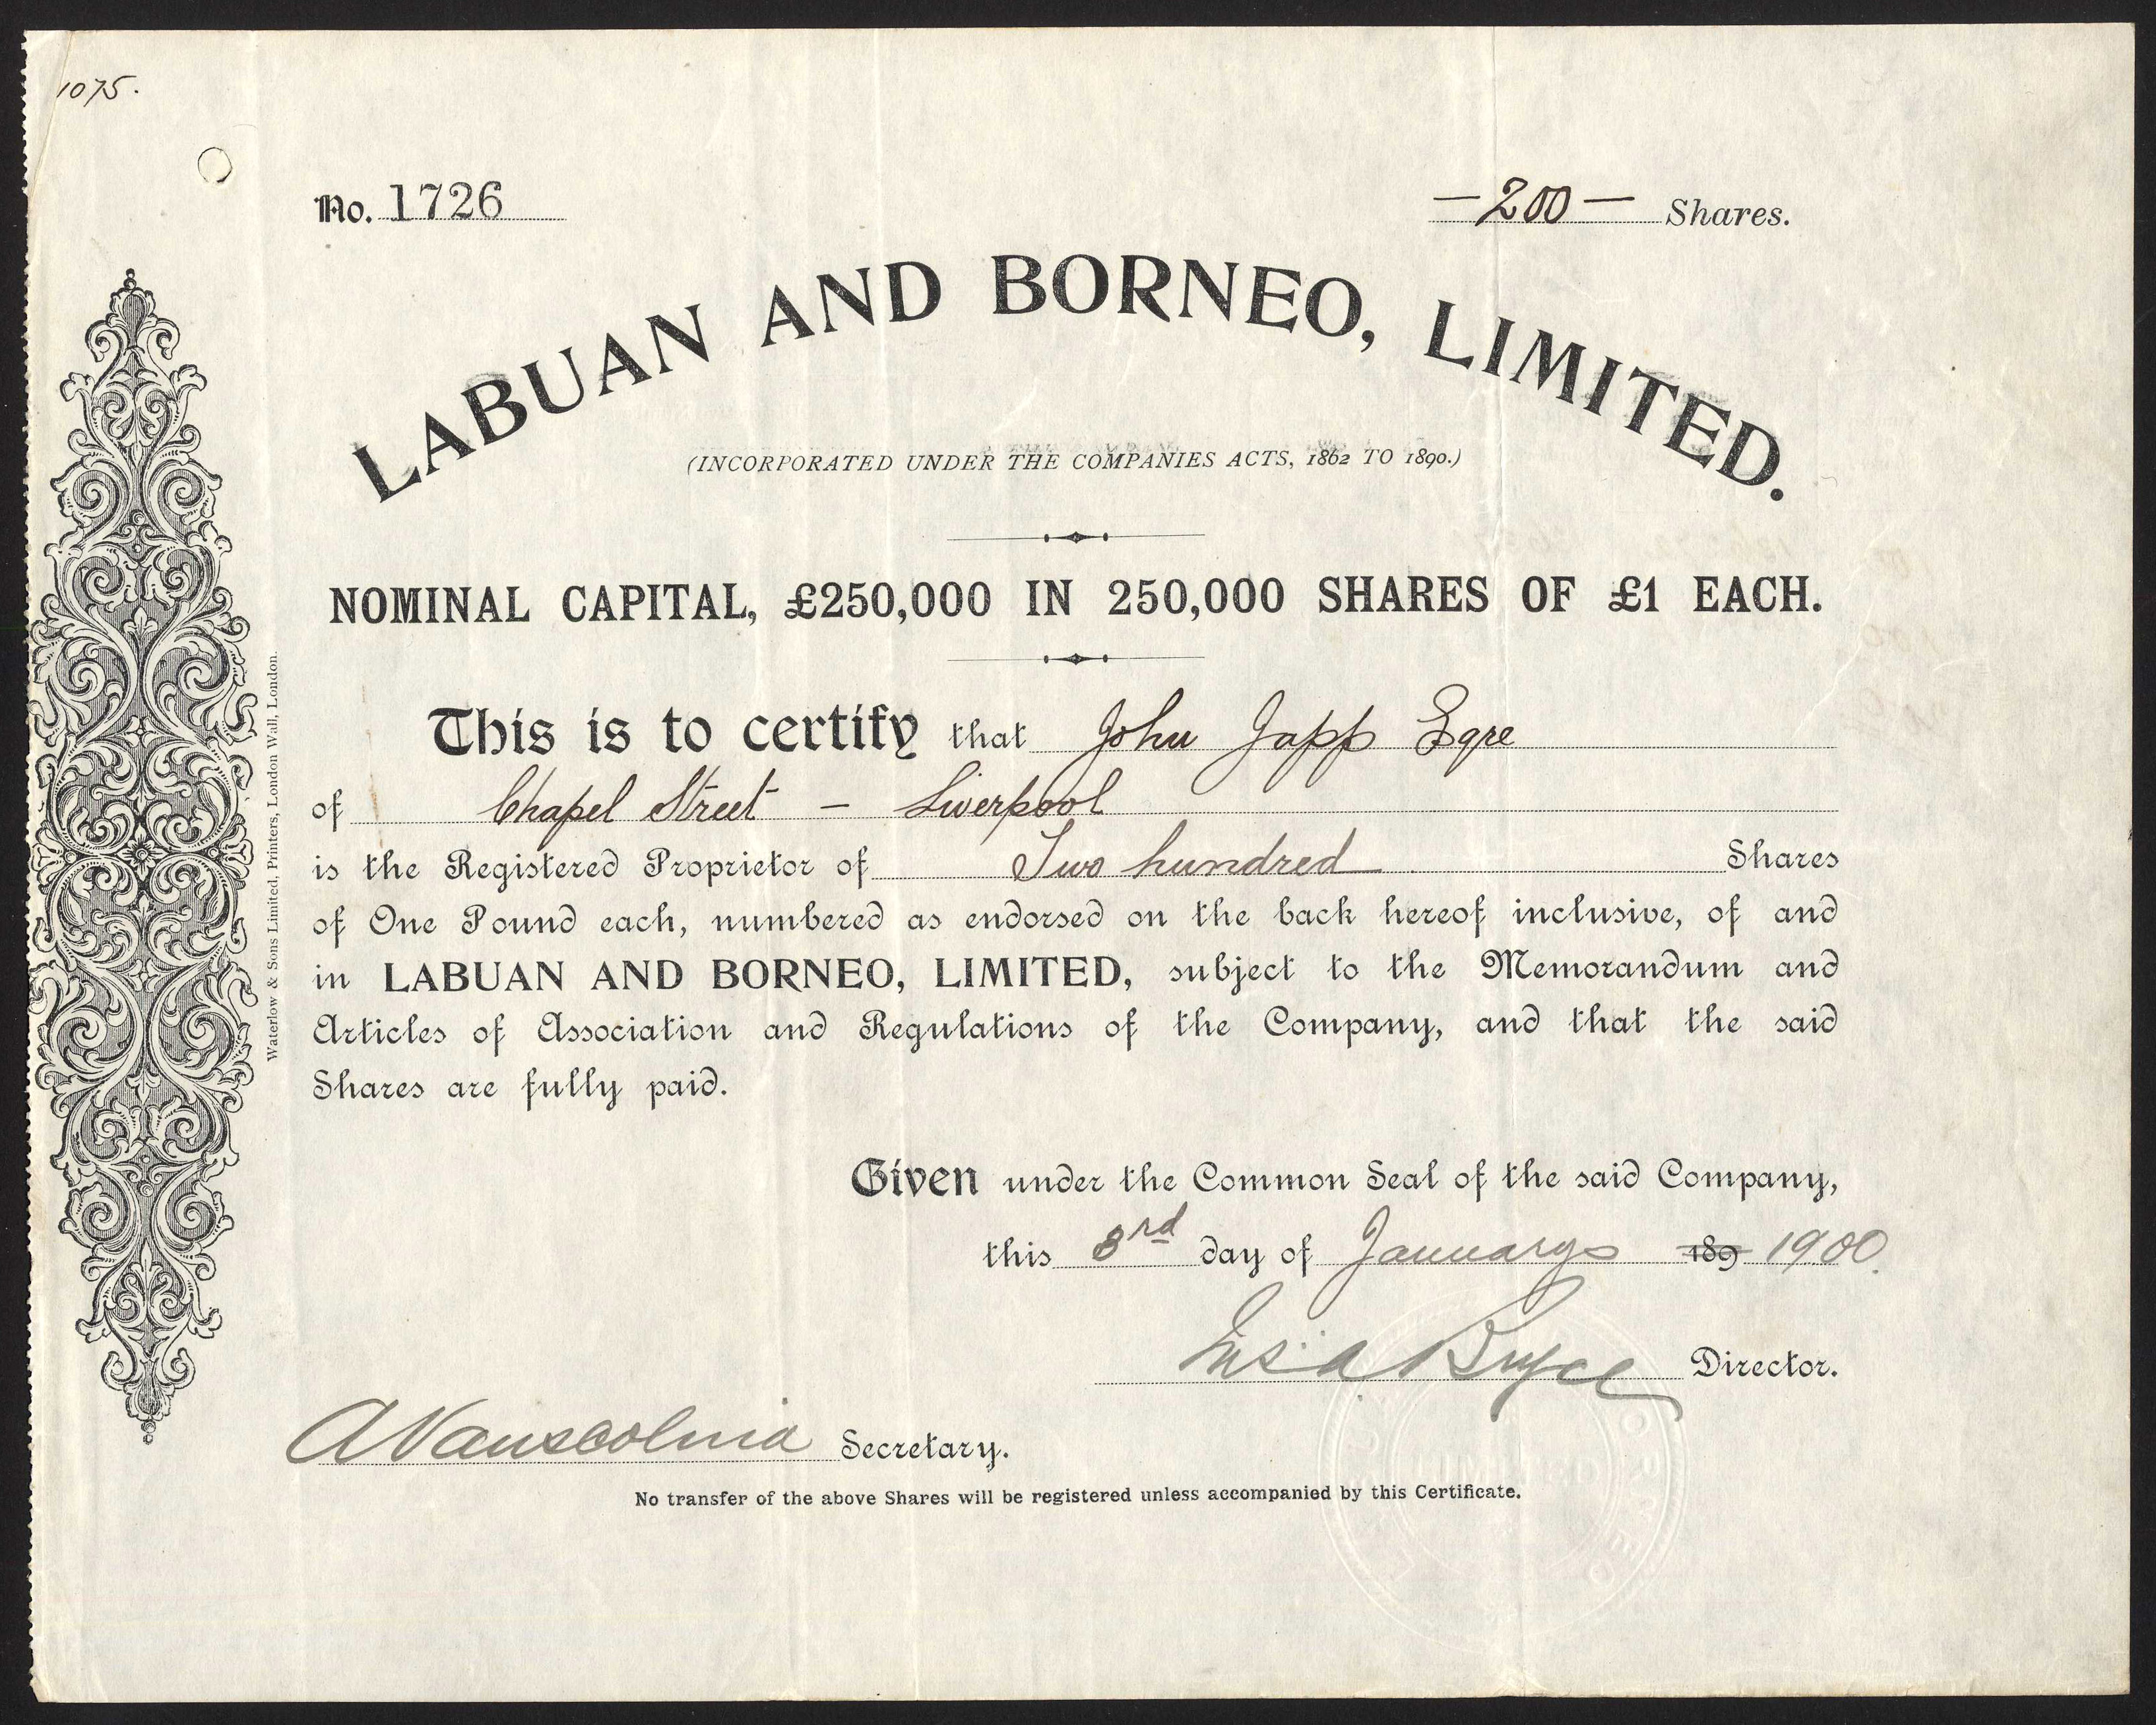 1075.
No. 1726
—200— Shares.
LABUAN AND BORNEO, LIMITED.
(INCORPORATED UNDER THE COMPANIES ACTS, 1862 TO 1890.)
NOMINAL CAPITAL, £250,000 IN 250,000 SHARES OF £1 EACH.
This is to certify that John Japp Esqre
of Chapel Street — Liverpool
is the Registered Proprietor of Two hundred Shares
of One Pound each, numbered as endorsed on the back hereof inclusive, of and
in LABUAN AND BORNEO, LIMITED, subject to the Memorandum and
Articles of Association and Regulations of the Company, and that the said
Shares are fully paid.
Given under the Common Seal of the said Company,
this 3rd day of January 189 1900.
Bryce Director.
Secretary.
No transfer of the above Shares will be registered unless accompanied by this Certificate.
Waterlow & Sons Limited, Printers, London Wall, London.
LIMITED